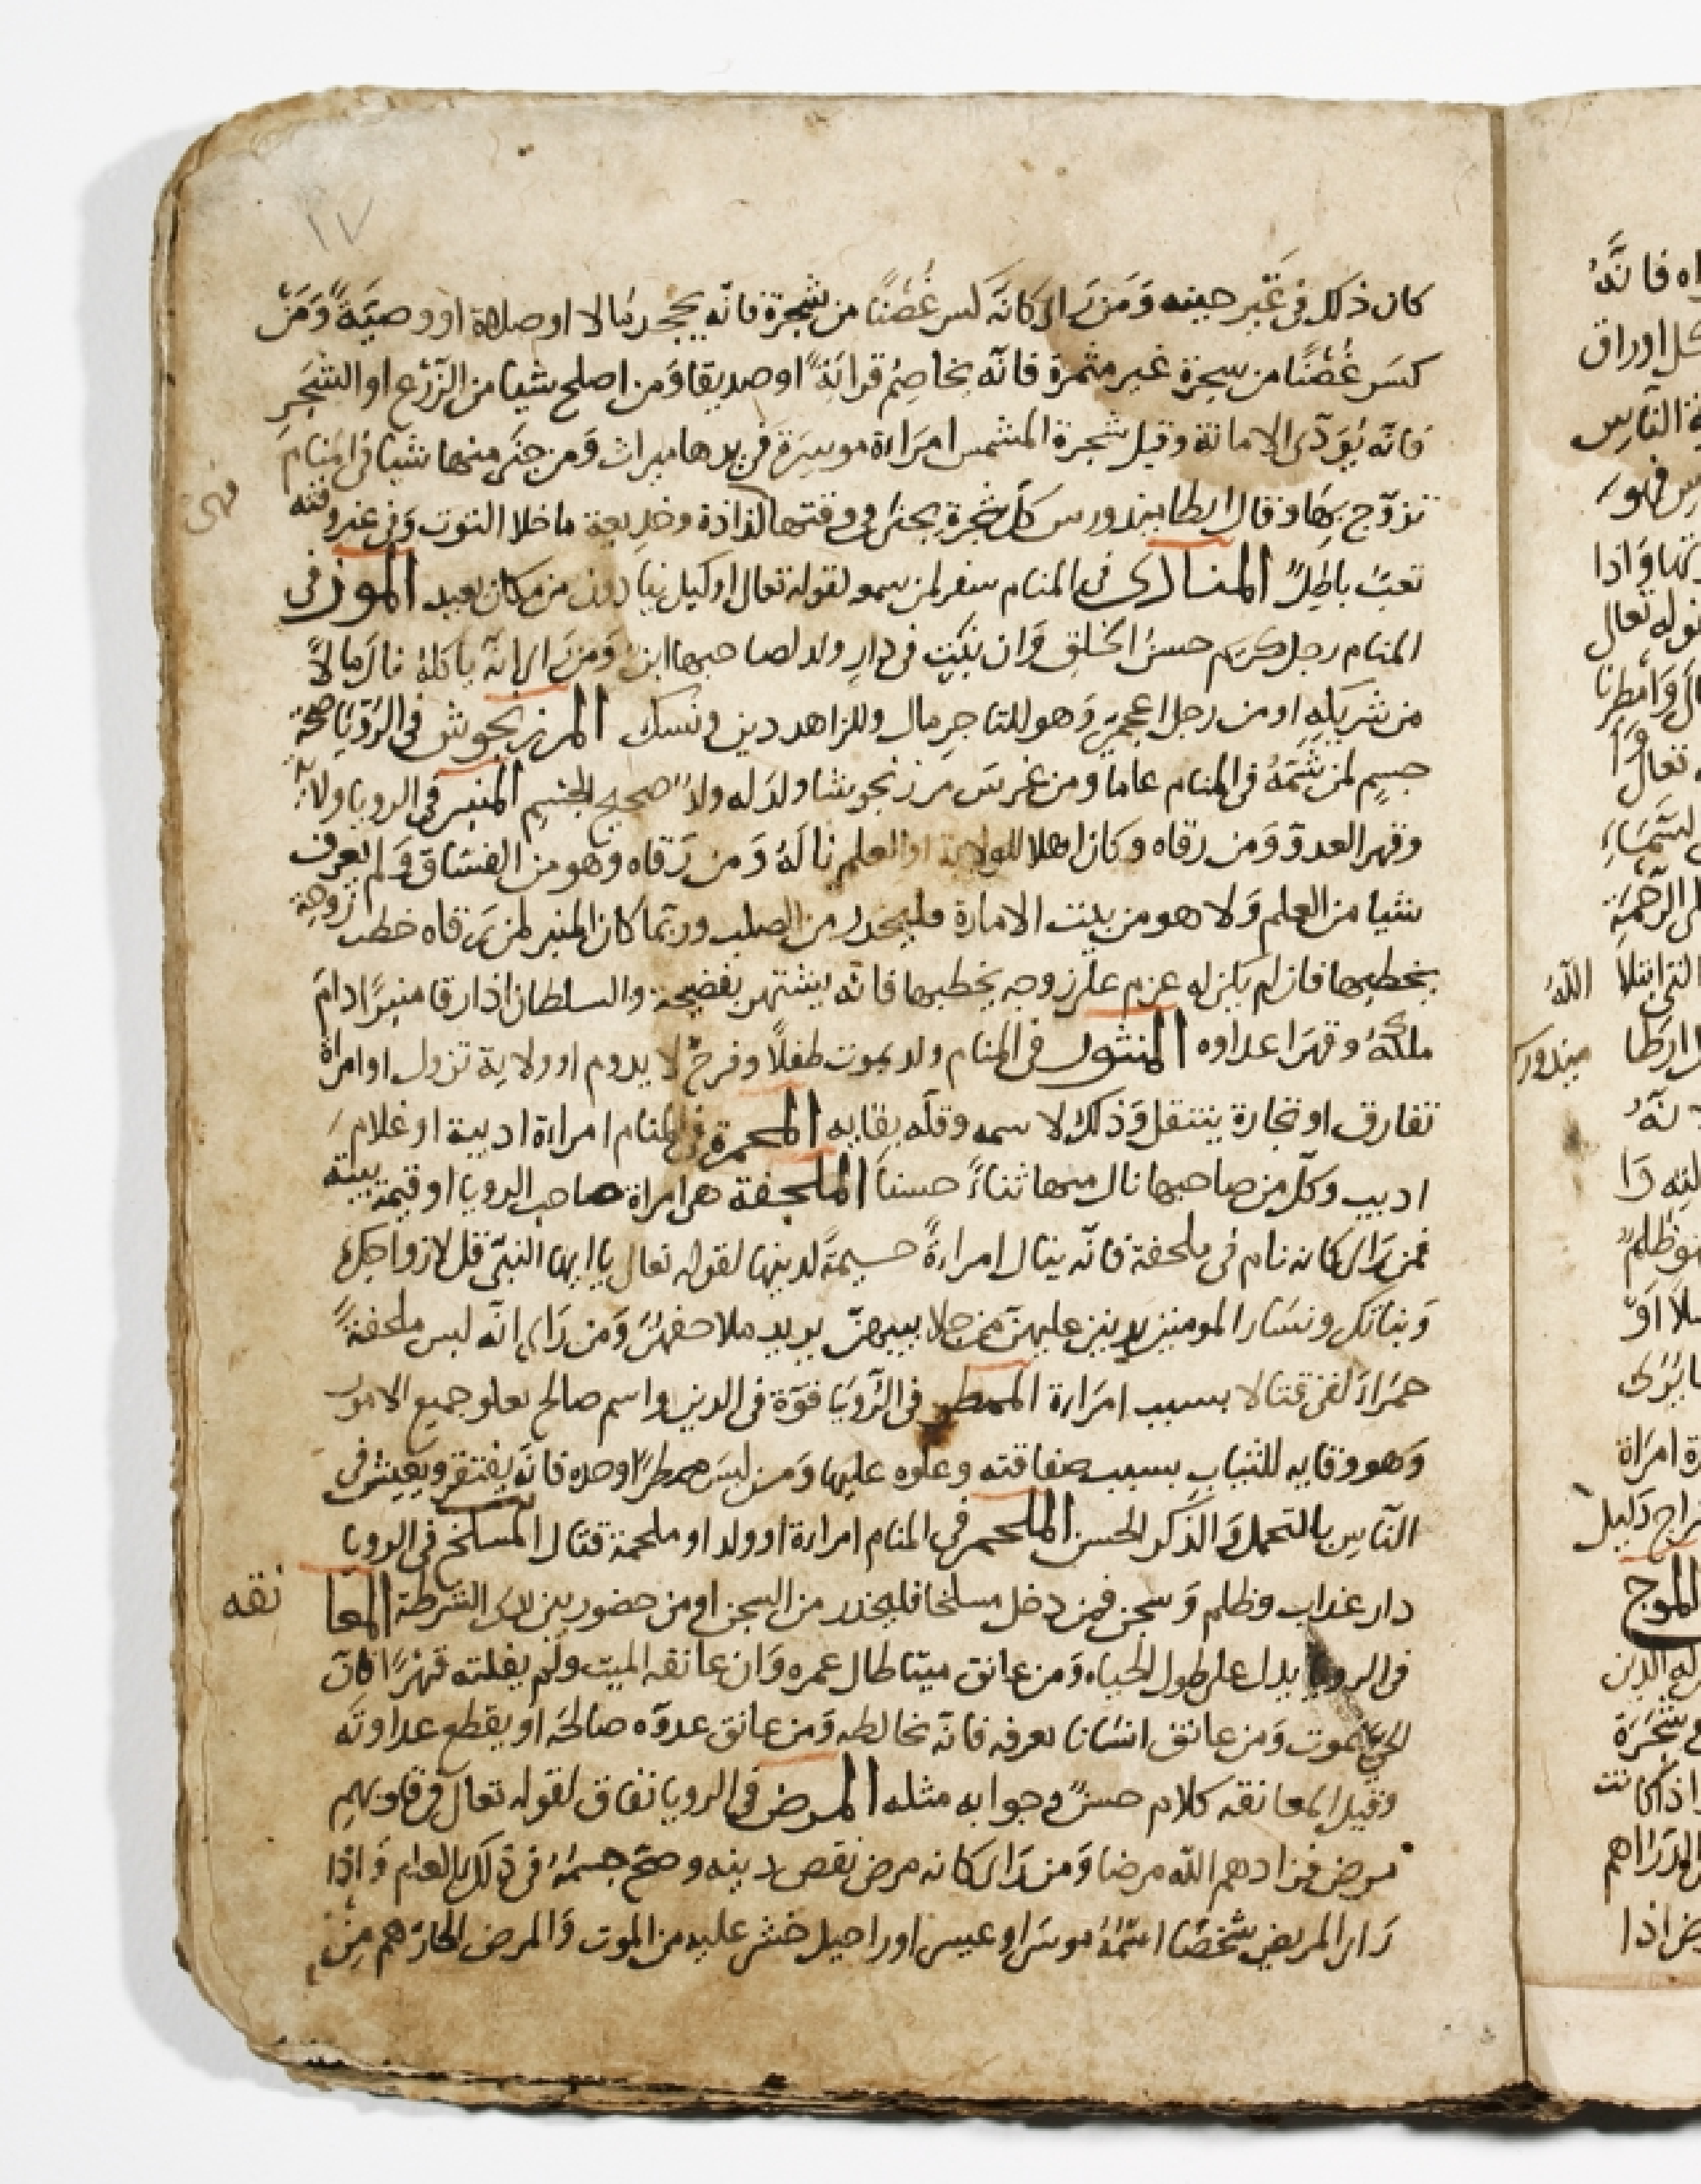 ١٧
كان ذلك في غير حينه وَمَن رَاى كانَه كسر غُصْنًا من شجرة فانّه يجحد مالا او صلاة او وصيّةً وَمَنْ
كسَر غُصْنًا من سجرة غير مثمرة فانّه يخاصِمُ قرابَةً او صديقا وَمن اصلح شيا من الزّرْع او الشجَرِ
فانّه يُوَدّى الامانة وقيل شجرة المشمس امرَاءة موسِرَة في يدها ميراث وَمن جنَى منها شيا في المنَام
تزوّج بهَا وقال ارطاميدورس كل شجرة يجنى في وقتها لذاذة وخديعة ماخلا التوت وَفي غير وقته
تعبٌ باطِلٌ المنادى في المنام سفر لمن سمعه لقوله تعالى اوليك ينادون من مكان بعيد الموز في
المنام رجل كريم حسنُ الخلق وَان نبَتت في دارٍ ولد لصاحبها ابنٌ وَمن رَاى انّه ياكلهُ نال مالاً
من شريكِهِ او من رجل اعجمىّ وَهو للتاجر مال وللزاهد دين ونسك المرزنجوش في الرّويَا صحّة
جسِمٍ لمن شَمَّهُ في المنام عاما ومن غرسَ مَرزنجوشا ولد له ولدٌ صحيح الجسم المنبر في الرويا ولاية
وقهر العدوّ وَمن رقاه وكان اهلا للولاية او العلم نالَهُ وَمن رَقاه وهو من الفسّاق وَلم يعرف
شيا من العلم وَلا هو من بيت الامارة فليحذر من الصلب وربّما كان المنبر لمن رَقاه خطب زوجة
يخطبها فان لم يكن له عزم على زوجه يخطبها فانّه يشتهر بفضيحة والسلطان اذا رقا منبرًا دامَ
ملكهُ وقهرَ اعداوه المنثور في المنام ولد يموت طفلاً وفرحٌ لا يدوم او ولاية تزول او امراة
تفارق او تجارة ينتقل وَذلك لاسمه وقلّه بقايه المجمرة في المنام امراءة اديبة او غلام
اديب وكلّ من صاحبها نال منها ثناءً حسنًا الملحفة هى امراة صاحب الرويا او قيمة بيته
فمن رَاى كانه نام في ملحفة فانّه ينال امراءةً حسيمةً لدينها لقوله تعالى يا ايها النبىّ قل لازواجكَ
وَبناتك ونسَاء المومنين يدنين عليهنّ من جلابيبهنّ يريد ملاحفهنُ وَمن رَاى انّه لبس ملحفةً
حمرَاءَ لقى قتالا بسبب امرَاءة الممطر في الرّويَا قوّة في الدين واسم صالح يعلو جميع الامور
وَهو وقايه للثياب بسبب صفاقته وعلوه عليها وَمن لبسَ ممطرًا وحده فانّه يفتقر ويعيش في
الناس بالتجمل وَالذكر الحسن الملحم في المنام امراءة او ولد او ملحمة قتال المسلخ في الرويا
دار عذاب وظلم وَسجن فمن دخل مسلخا فليحذر من السجن او من حضور بين يدى الشرطة المعا
نقه
في الرويا يدل على طول الحياه وَمن عانق ميتا طال عمره وَان عانقه الميت ولم يفلته قهْرًا كان
الحىّ يموت وَمن عانق انسَانا يعرفه فانّه يخالطه وَمن عانق عدوّه صالحَه او يقطع عداوتَه
وقيل المعانقه كلام حسنٌ وجوابه مثله المرض في الرويا نفاق لقوله تعالى في قلوبهم
مرض فزادهم الله مرضا وَمن رَاى كانه مرض نقص دينه وصحّ جسمُهُ في ذلك العام وَاِذا
رَاى المريض شخصًا اسمُهُ موسَى او عيسى او راحيل خشى عليه من الموت وَالمرض الحارّ هم مِنْ